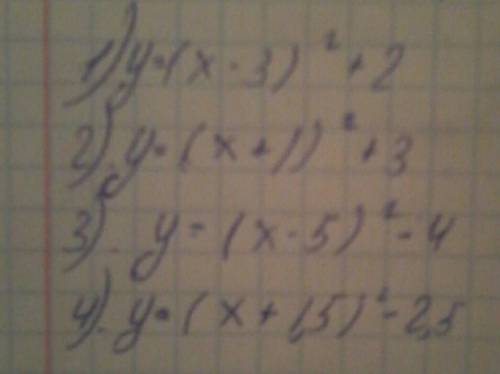 1) y=(x-3)²+2
2) y=(x+1)²+3
3). y=(x-5)²-4
4). y=(x+1,5)²-2,5